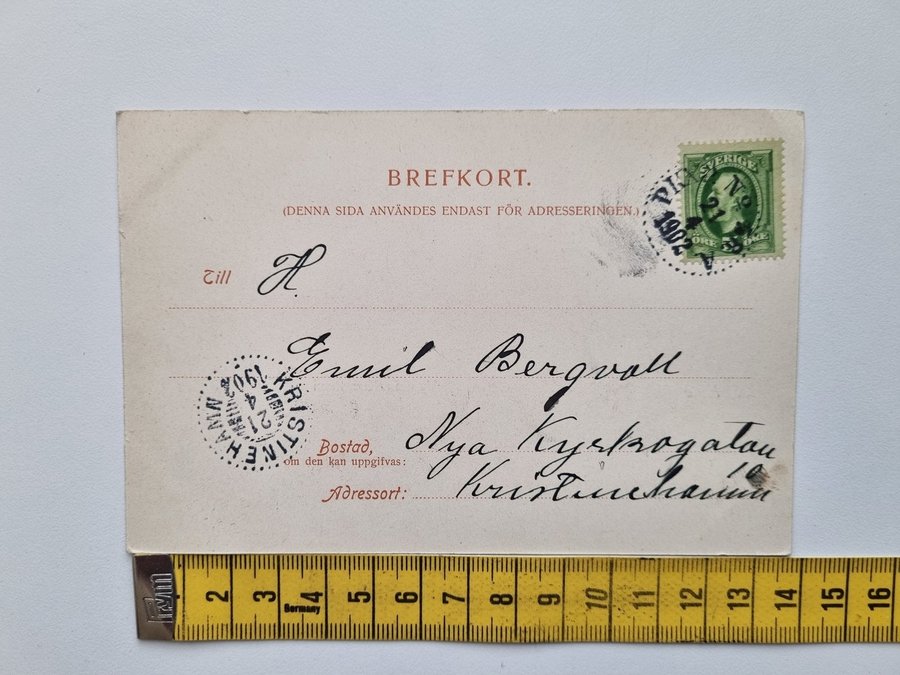 BREFKORT.
(DENNA SIDA ANVÄNDES ENDAST FÖR ADRESSERINGEN.)
SVERIGE
5 ÖRE
PKXP No
21
4
1902
A
Till H.
Emil Bergvall
KRISTINEHAMN
21
4
1902
Bostad,
om den kan uppgifvas:
Nya Kyrkogatan
10
Adressort: Kristinehamn
2 3 4 5 6 7 8 9 10 11 12 13 14 15 16
Germany